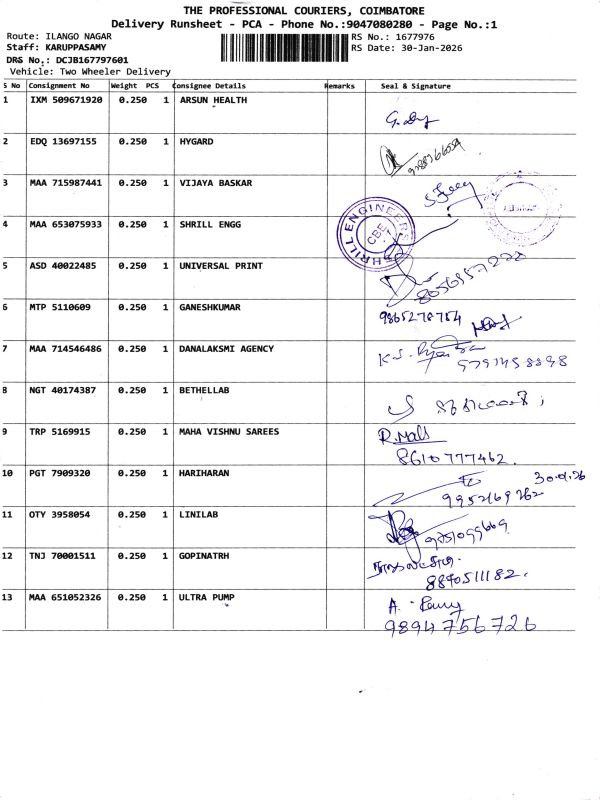 THE PROFESSIONAL COURIERS, COIMBATORE
Delivery Runsheet - PCA - Phone No.:9047080280 - Page No.:1
Route: ILANGO NAGAR RS No.: 1677976
Staff: KARUPPASAMY RS Date: 30-Jan-2026
DRS No.: DCJB167797601
Vehicle: Two Wheeler Delivery
S No Consignment No Weight PCS Consignee Details Remarks Seal & Signature
1 IXM 509671920 0.250 1 ARSUN HEALTH
2 EDQ 13697155 0.250 1 HYGARD
3 MAA 715987441 0.250 1 VIJAYA BASKAR
4 MAA 653075933 0.250 1 SHRILL ENGG
SHRILL ENGINEERS CBE
5 ASD 40022485 0.250 1 UNIVERSAL PRINT
6 MTP 5110609 0.250 1 GANESHKUMAR 9865278754
7 MAA 714546486 0.250 1 DANALAKSMI AGENCY
8 NGT 40174387 0.250 1 BETHELLAB
9 TRP 5169915 0.250 1 MAHA VISHNU SAREES R.Mals
8610777462.
10 PGT 7909320 0.250 1 HARIHARAN 30.01.26
9952169262
11 OTY 3958054 0.250 1 LINILAB
12 TNJ 70001511 0.250 1 GOPINATRH
8870511182.
13 MAA 651052326 0.250 1 ULTRA PUMP
9894756726